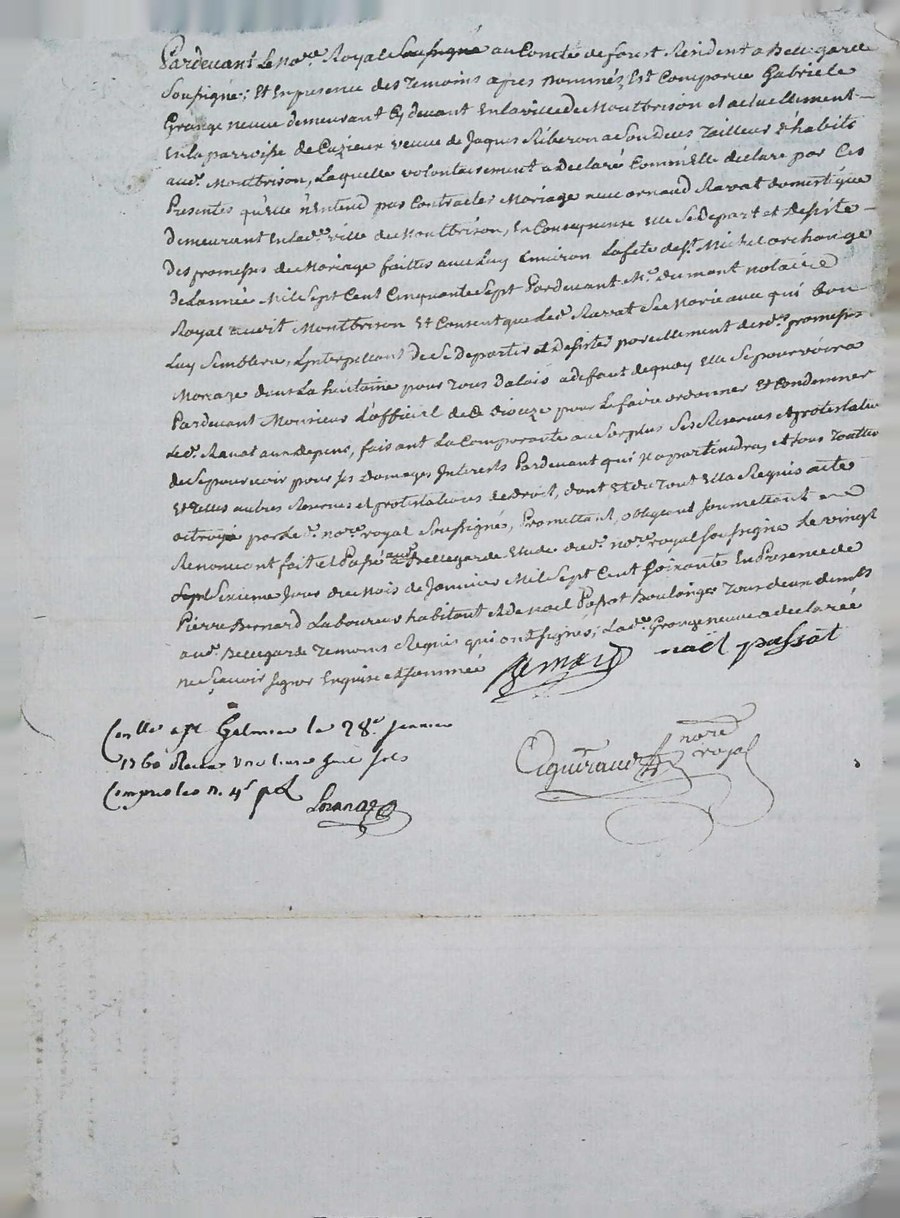 Pardevant Le no.re Royal Soussigné au Comté de forest Résident a Bellegarde
Soussigné; Et En presence des Temoins apres nommés, Est Comparue Gabriele
Grangeneuve demeurant Cy devant En la ville de Montbrison et actuellement
En la parroisse de Cuzieux veuve de Jaques Riberon a Son deces Tailleur d'habits
aud. Montbrison, Laquelle volontairement a declaré Comm'Elle declare par Ces
Presentes qu'elle n'Entend pas Contracter Mariage avec arnaud Ravat domestique
demeurant En lad.e ville de Montbrison, En Consequense Elle Se Depart et Desiste
Des promesses de Mariage faittes avec Luy Environ La fete de S.t Michel archange
de L'année Mil Sept Cent Cinquante Sept Pardevant M.e dumont notaire
Royal aud.it Montbrison Et Consent que Led. Ravat Se Marie avec qui bon
Luy Semblera, L'interpellant de Se Departir et Desister pareillement desd. promesses
Mariage dans La huitaine pour Tous Dalais a defaut de quoy Elle Se pourvoira
Pardevant Monsieur L'official de Dioceze pour Le faire ordonner Et Condemner
Led. Ravat aux depens, faisant La Comparante au Surplus Ses Reserves et protestations
de Se pourvoir pour Ses Domages Interests Pardevant qui Il apartiendra, et Sous Touttes
Et Telles autres Reserves et protestations de Droit, dont Et du Tout Elle a Requis acte
octroyé par led. no.re royal Soussigné, Promettant, obligeant Soumettant
Renonçant fait et Passé aud. Bellegarde Etude dud. no.re royal soussigné Le vingt
Sept Sixieme Jour du Mois de Janvier Mil Sept Cent Soixante En Presence de
Pierre Bernard Laboureur habitant et de noel Passot Boulanger Tous deux
aud. Bellegarde Temoins Requis qui ont Signés; La d. Grangeneuve a declarée
ne Sçavoir Signer Enquise et Sommée
Bernard noël passot
Con.lle a St Galmier le 28.e janvier
1760 Reçu
Compris les n. 4s p L
no.re
royal